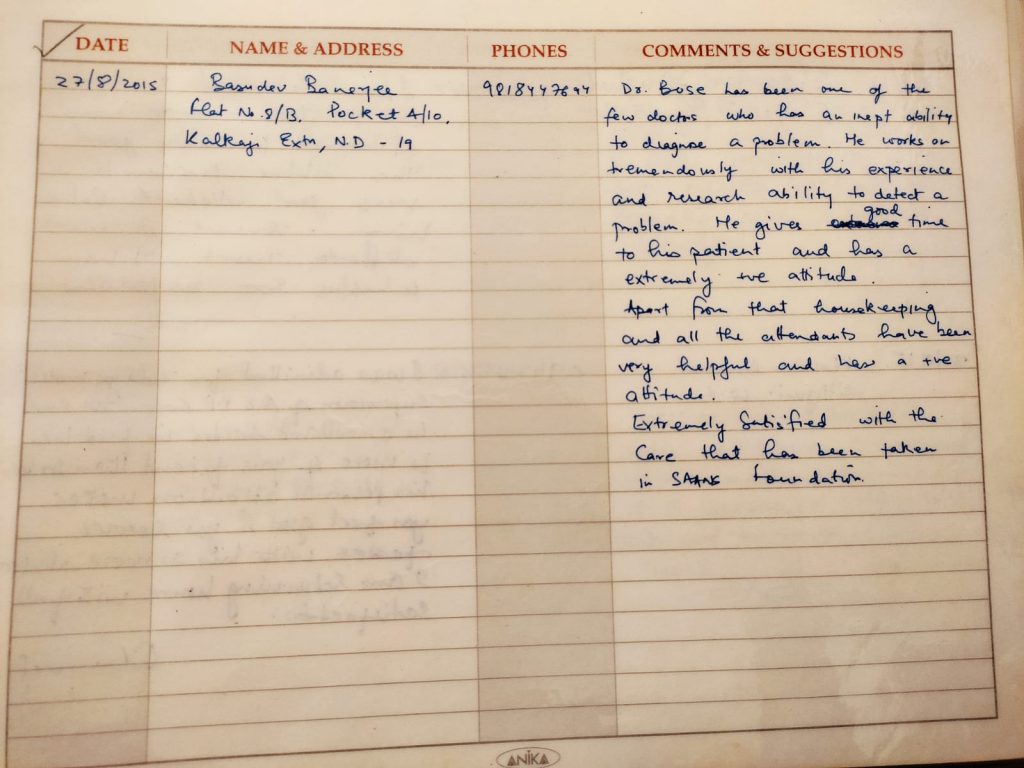 DATE
NAME & ADDRESS
PHONES
COMMENTS & SUGGESTIONS
27/8/2015
Basudev Banerjee
Flat No. 8/B. Pocket A/10.
Kalkaji Extn, N.D - 19
Dr. Bose has been one of the
few doctors who has an inept ability
to diagnose a problem. He works on
tremendously with his experience
and research ability to detect a
problem. He gives good time
to his patient and has a
extremely +ve attitude.
Apart from that housekeeping
and all the attendants have been
very helpful and has a +ve
attitude.
Extremely Satisfied with the
Care that has been taken
in SAANS Foundation.
ANIKA